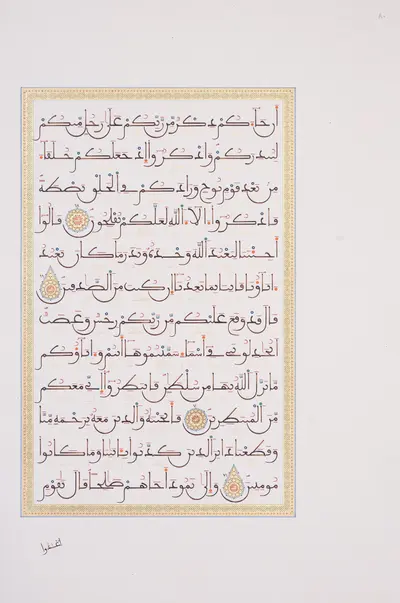 أن جاءكم ذكر من ربكم على رجل منكم
لينذركم واذكروا إذ جعلكم خلفاء
من بعد قوم نوح وزادكم في الخلق بصطة
فاذكروا ءالاء الله لعلكم تفلحون قالوا
أجئتنا لنعبد الله وحده ونذر ما كان يعبد
ءاباؤنا فأتنا بما تعدنا إن كنت من الصدقين
قال قد وقع عليكم من ربكم رجس وغضب
أتجدلونني في أسماء سميتموها أنتم وءاباؤكم
ما نزل الله بها من سلطن فانتظروا إني معكم
من المنتظرين فأنجينه والذين معه برحمة منا
وقطعنا دابر الذين كذبوا بـايتنا وما كانوا
مومنين وإلى ثمود أخاهم صلحا قال يقوم
اعبدوا